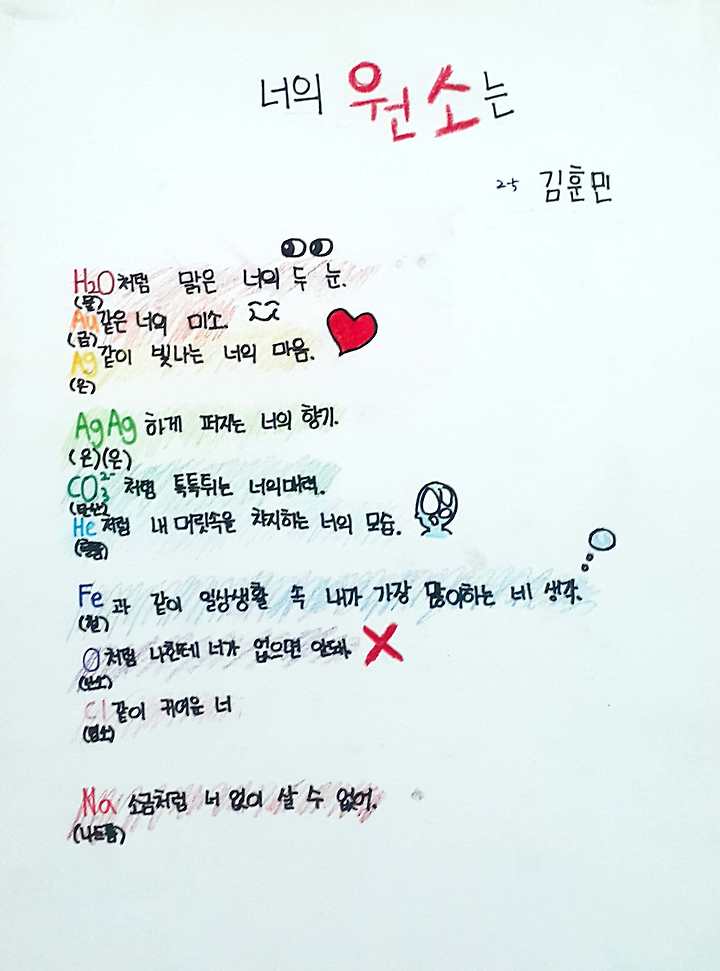 너의 원소는
2-5 김훈민
H2O처럼 맑은 너의 두 눈.
(물)
Au같은 너의 미소.
(금)
Ag같이 빛나는 너의 마음.
(은)
AgAg하게 퍼지는 너의 향기.
(은)(은)
CO₃²⁻처럼 톡톡튀는 너의매력.
(탄산)
He처럼 내 머릿속을 차지하는 너의 모습.
Fe과 같이 일상생활 속 내가 가장 많이하는 네 생각.
(철)
O처럼 나한테 너가 없으면 안돼.
(산소)
Cl같이 귀여운 너
(염소)
Na 소금처럼 너 없이 살 수 없어.
(나트륨)